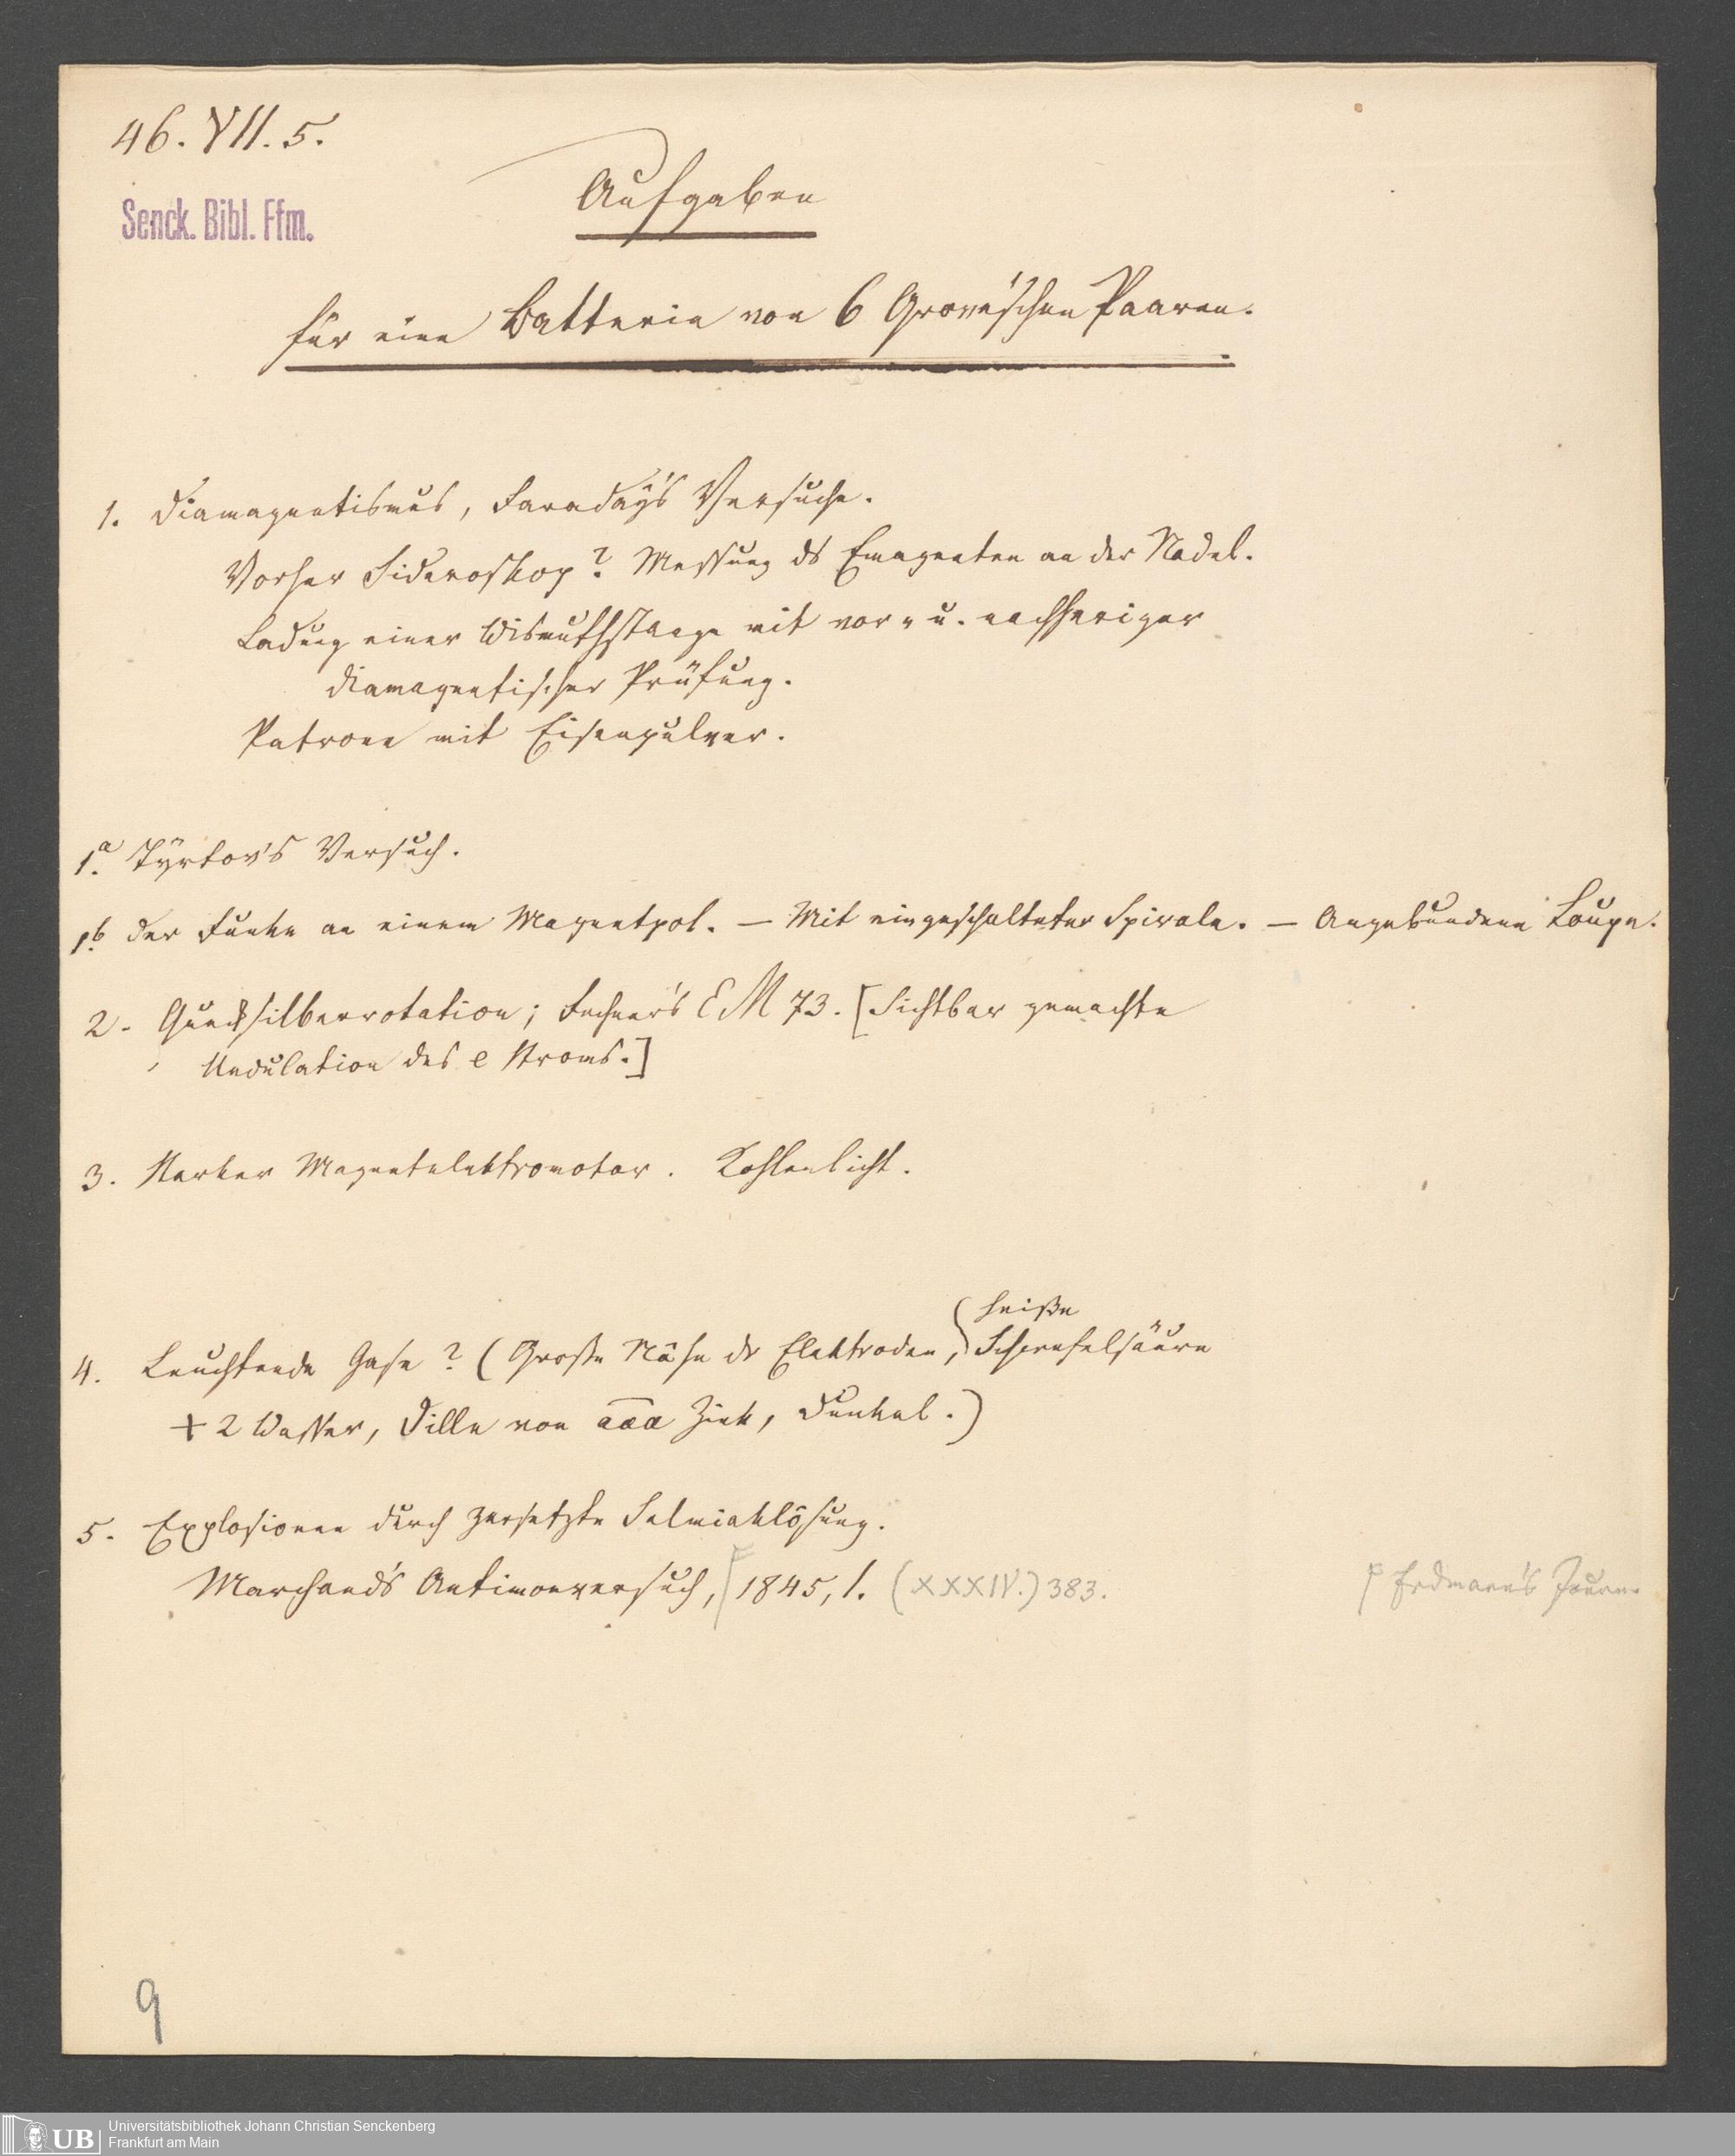 46. VII. 5.
Senck. Bibl. Ffm.
Aufgaben
für eine Batterie von 6 Grove'schen Paaren.
1. Diamagnetismus, Faraday's Versuche.
Vorher Sideroskop? Messung ds Emagneten an der Nadel.
Ladung einer Wismuthstange mit vor- u. nachheriger
diamagnetischer Prüfung.
Patrone mit Eisenpulver.
1.a Tÿrtov's Versuch.
1.b der Funke an einem Magnetpol. — Mit eingeschalteter Spirale. — Angebundene Loupe.
2. Quecksilberrotation; Fechner's EM 73. [Sichtbar gemachte
Undulation des e Stroms.]
3. Starker Magnetelektromotor. Kohlenlicht.
heiße
4. Leuchtende Gase? (Große Nähe dr Elektroden, Schwefelsäure
+ 2 Wasser, Dille von Zink, Dunkel.)
5. Explosionen durch zersetzte Salmiaklösung.
Marchand's Antimonversuch, 1845, 1. (XXXIV.) 383.
Erdmann's Journ.
9
UB
Universitätsbibliothek Johann Christian Senckenberg
Frankfurt am Main